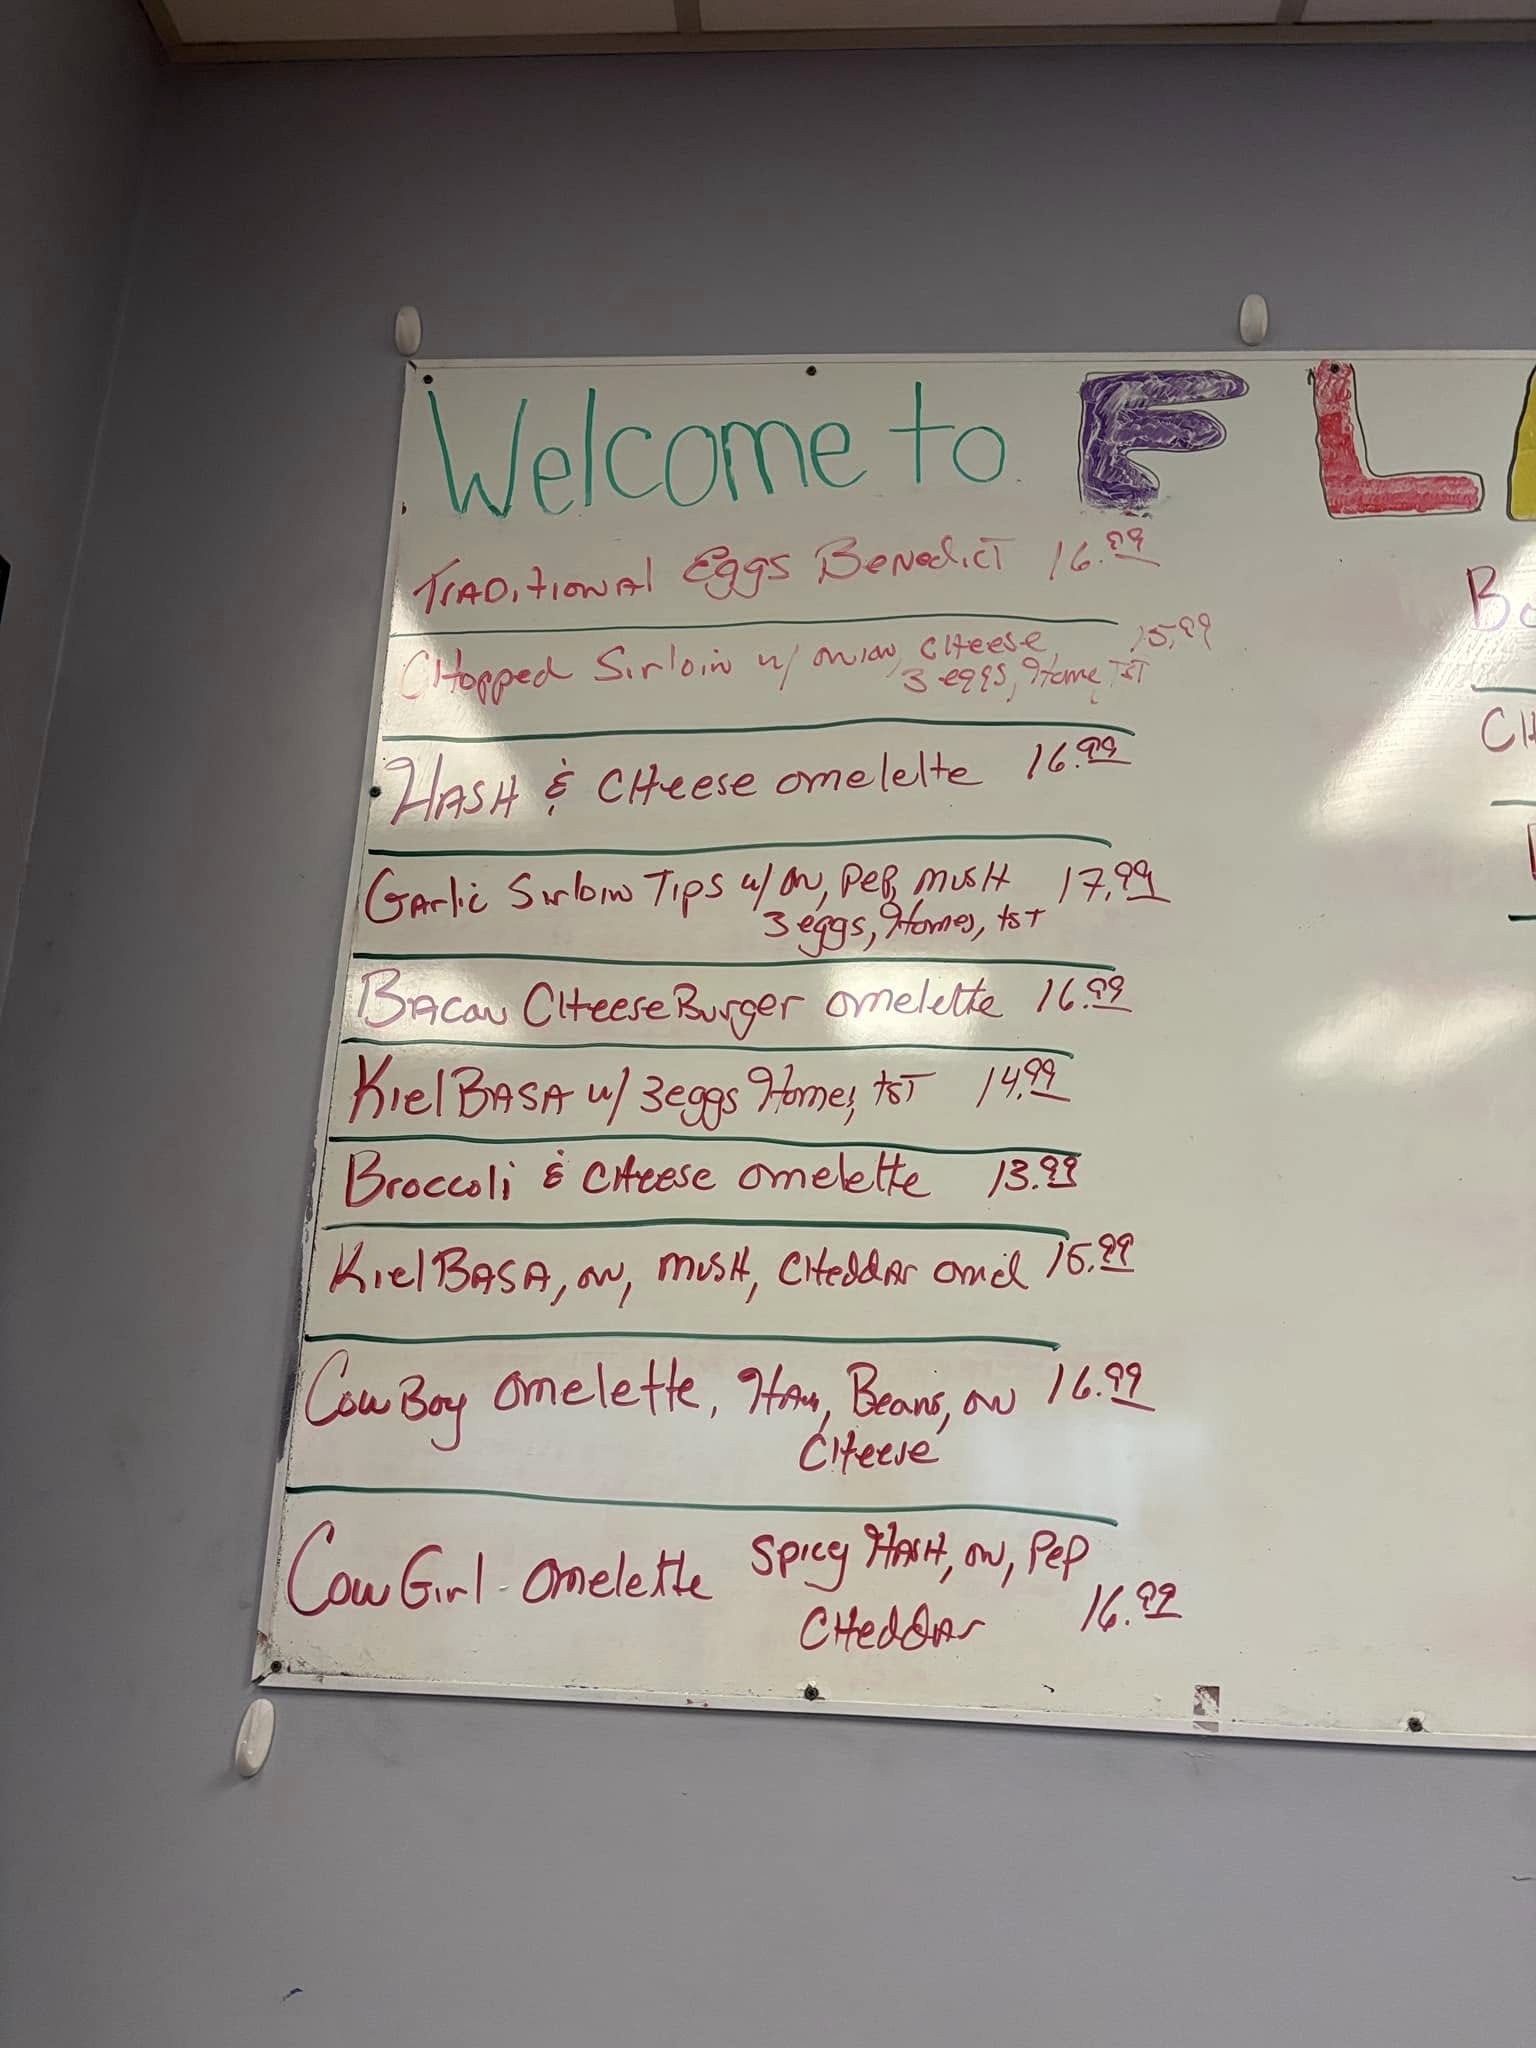 Welcome to FLA
Traditional Eggs Benedict 16.99
Chopped Sirloin w/ onion, cheese, 15.99
3 eggs, Home, TST
Hash & Cheese omelette 16.99
Garlic Sirloin Tips w/ on, pep, mush 17.99
3 eggs, Homes, tst
Bacon CheeseBurger omelette 16.99
KielBASA w/ 3 eggs Homes, tst 14.99
Broccoli & Cheese omelette 13.99
KielBASA, on, mush, Cheddar omel 15.99
CowBoy omelette, Ham, Beans, on 16.99
Cheese
CowGirl - omelette Spicy Hash, on, Pep
Cheddar 16.99
Bo
CH